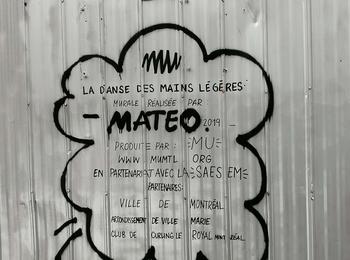 MU
LA DANSE DES MAINS LÉGÈRES
MURALE RÉALISÉE PAR
- MATEO. 2019 -
PRODUITE PAR : MU
WWW MUMTL ORG
EN PARTENARIAT AVEC LA SAESEM
PARTENAIRES:
VILLE DE MONTRÉAL
ARRONDISSEMENT DE VILLE MARIE
CLUB DE CURLING LE ROYAL MONTRÉAL